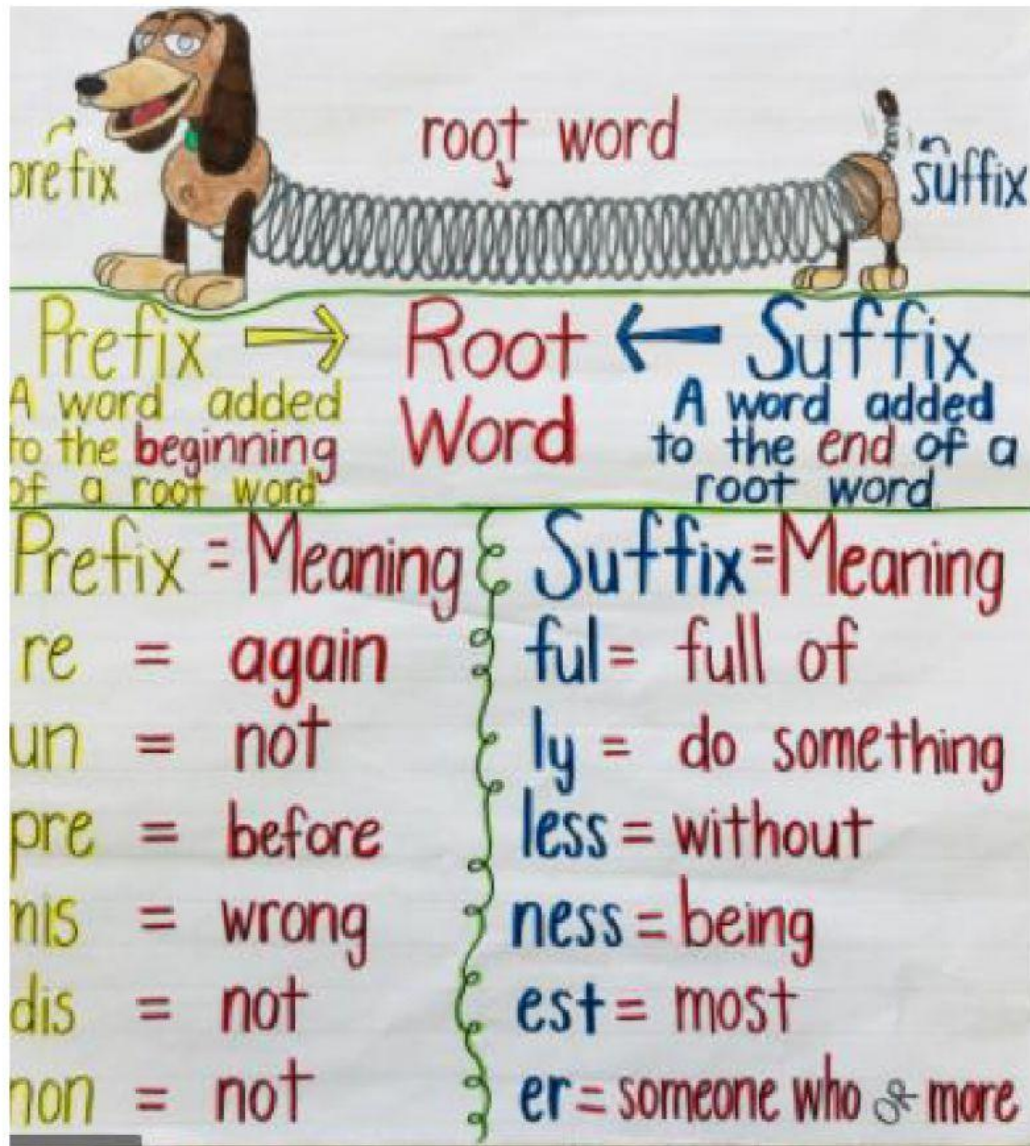 root word
prefix
suffix
Prefix → Root ← Suffix
Word
A word added
to the beginning
of a root word.
A word added
to the end of a
root word
Prefix = Meaning
re = again
un = not
pre = before
mis = wrong
dis = not
non = not
Suffix=Meaning
ful= full of
ly = do something
less = without
ness = being
est = most
er = someone who OR more